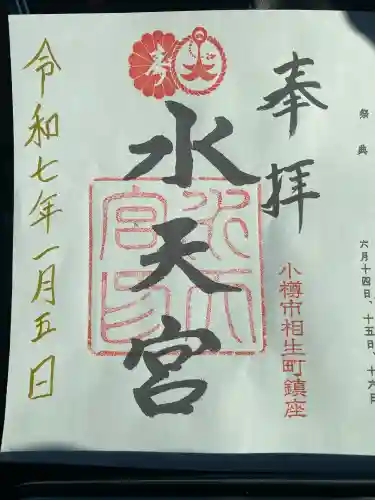 祭典 六月十四日、十五日、十六日
奉拝
小樽市相生町鎮座
水天宮
令和七年一月五日